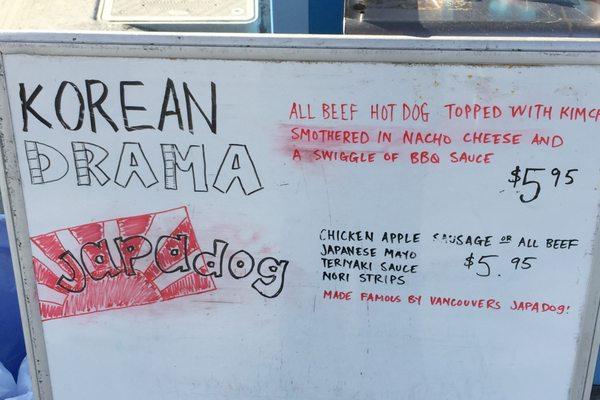 KOREAN
DRAMA
ALL BEEF HOT DOG TOPPED WITH
SMOTHERED IN NACHO CHEESE AND
A SWIGGLE OF BBQ SAUCE
$5.95
JAPADOG
CHICKEN APPLE SAUSAGE OR ALL BEEF
JAPANESE MAYO
TERIYAKI SAUCE
NORI STRIPS
$5.95
MADE FAMOUS BY VANCOUVERS JAPADOG!